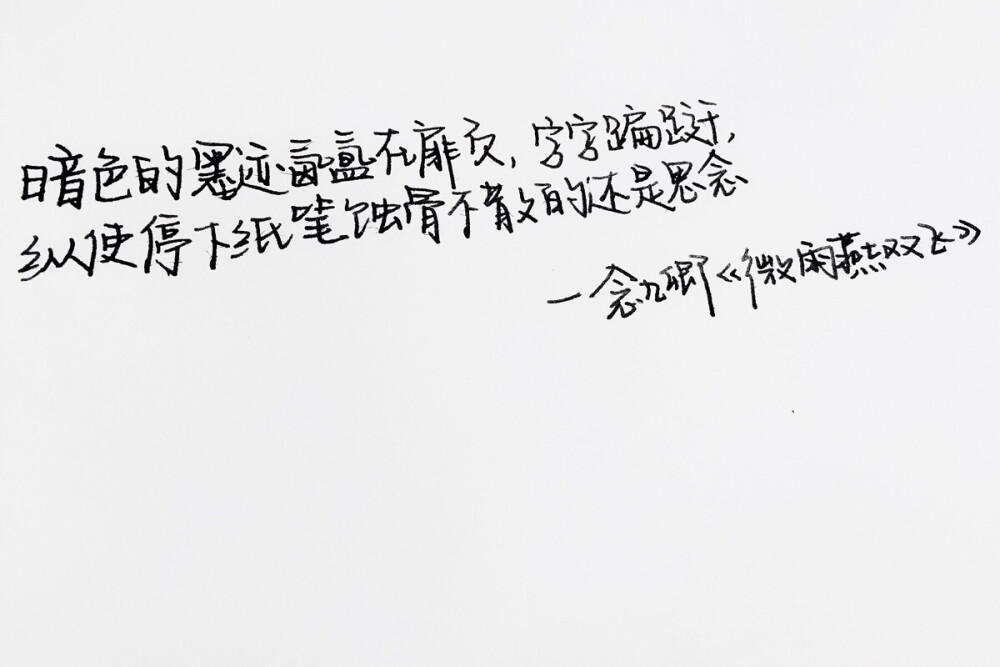 暗色的墨迹氤氲在扉页，字字蹁跹，
纵使停下纸笔蚀骨不散的还是思念
一念九卿《微雨燕双飞》